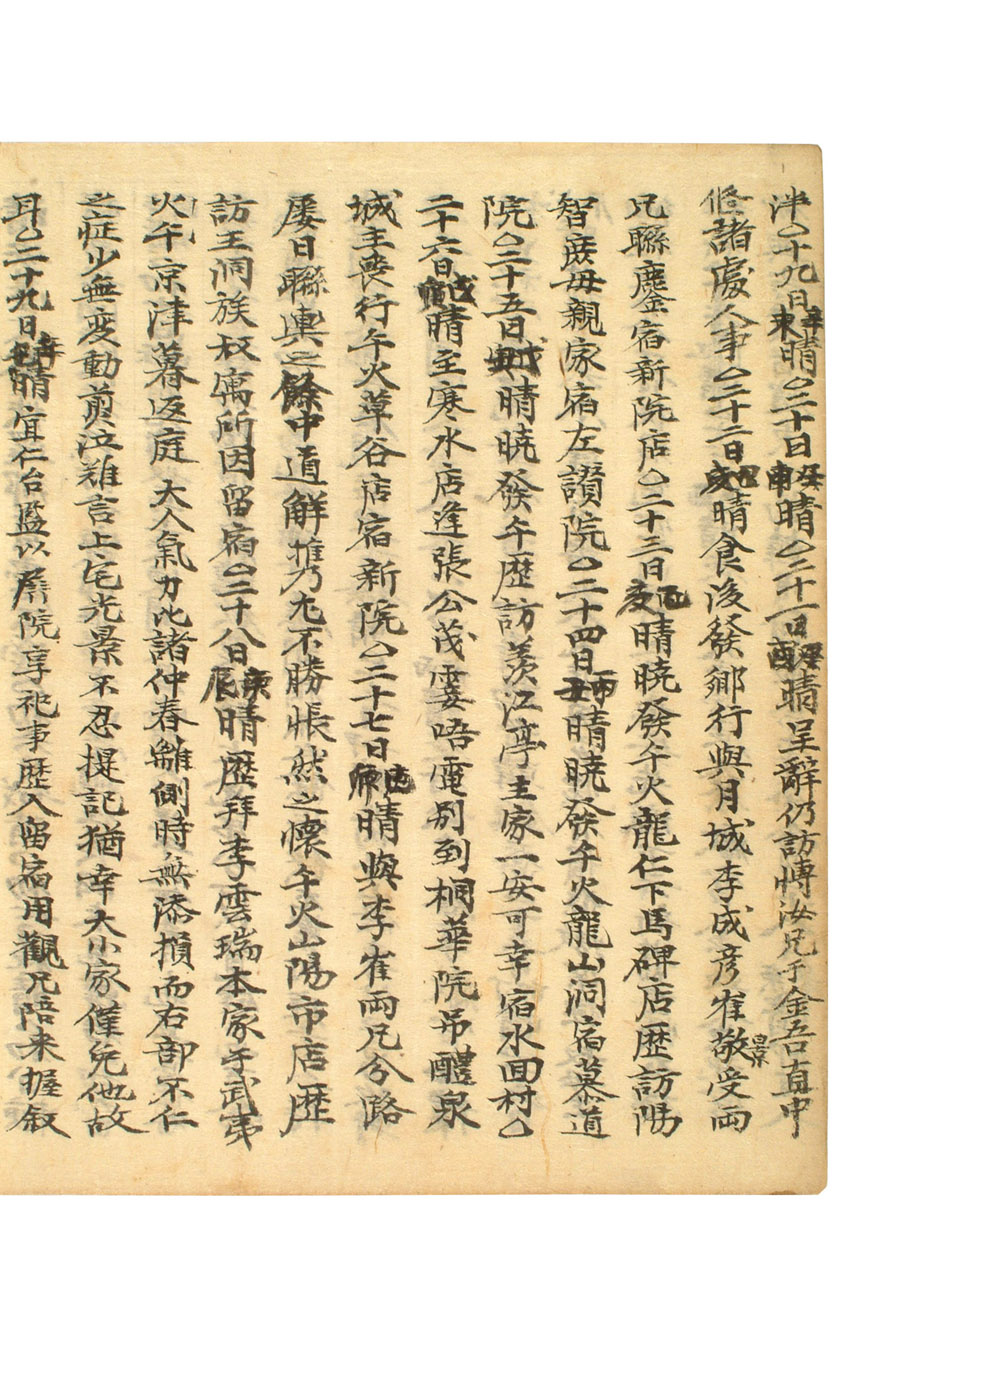 津○十九日辛未晴○二十日壬申晴○二十一日癸酉晴呈辭仍訪博汝兄于金吾直中
修諸處人事○二十二日晴食後發鄉行與月城李成彦崔敬受景昷兩
兄聯鑣宿新院店○二十三日晴曉發午火龍仁下馬碑店歷訪陽
智族母親家宿左讚院○二十四日丙子晴曉發午火龍山洞宿慕道
院○二十五日晴曉發午歷訪羨江亭主家一安可幸宿水回村○
二十六日晴至寒水店逢張公茂霎唔電別到桐華院吊醴泉
城主喪行午火草谷店宿新院○二十七日晴與李崔兩兄分路
屢日聯輿之餘中道解携乃尤不勝悵然之懷午火山陽市店歷
訪王洞族叔寓所因留宿○二十八日庚辰晴歷拜李雲瑞本家于武夷
火午京津暮返庭大人氣力比諸仲春離側時無添損而右部不仁
之症少無変動煎泣難言上宅光景不忍提記猶幸大小家僅免他故
耳○二十九日晴宜仁台監以屛院享祀事歷入留宿用觀兄陪来握叙